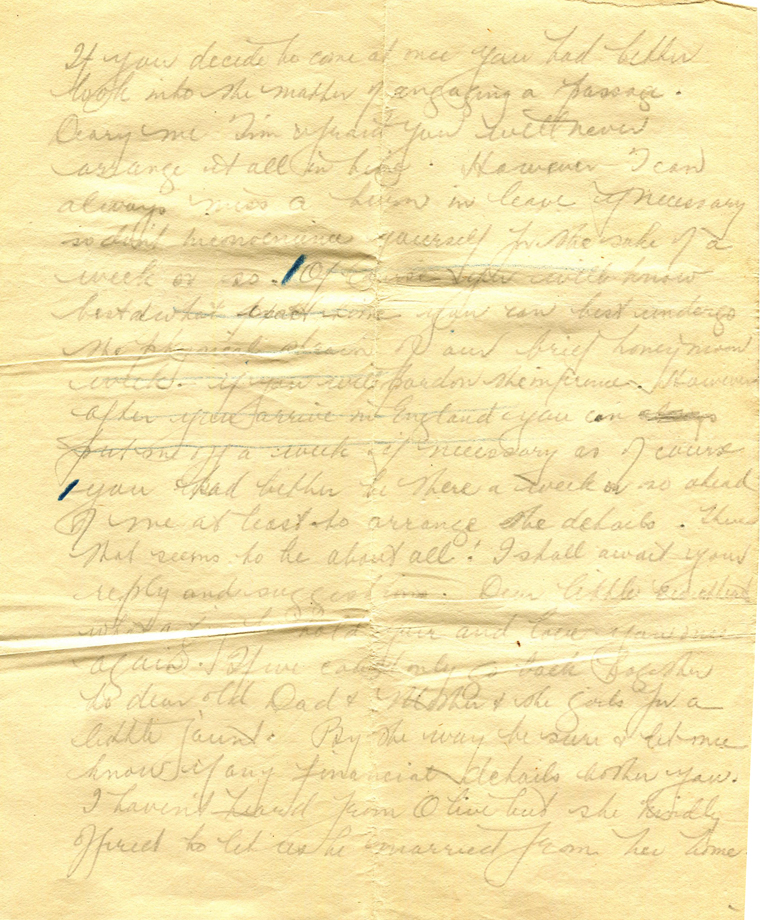 If you decide to come at once you had better
look into the matter of engaging a passage.
Deary me I'm afraid you will never
arrange it all in time. However I can
always miss a turn in leave if necessary
so don't inconvenience yourself for the sake of a
week or so. Of course you will know
best at what time you can best undergo
the physical strain of our brief honeymoon
week. if you will pardon the inference. However
after you arrive in England you can always
put me off a week if necessary as of course
you had better be there a week or so ahead
of me at least to arrange the details.
that seems to be about all. I shall await your
reply and suggestions. Dear little
to hold you and love you once
again. If we could only go back together
to dear old Dad & Mother & the girls for a
little jaunt. By the way be sure & let me
know if any financial details bother you.
I haven't heard from Olive but she kindly
offered to let us be married from her home